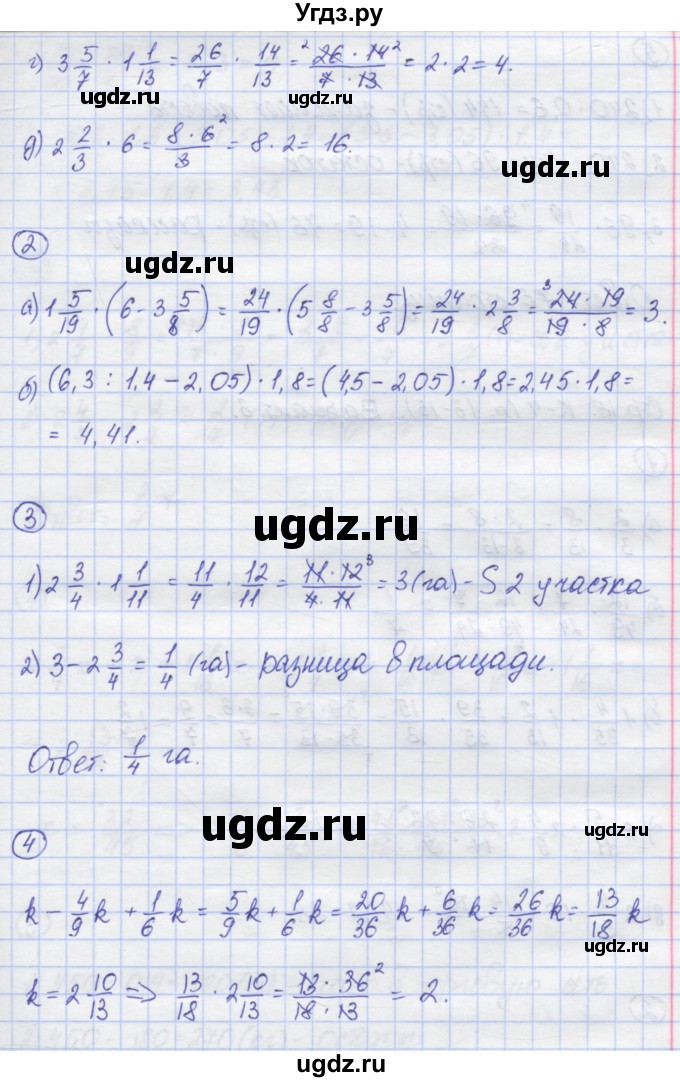 Угдз.ру
г) 3 5/7 · 1 1/13 = 26/7 · 14/13 = ²26 · 14²/7 · 13 = 2 · 2 = 4.
ugdz.ru ugdz.ru
д) 2 2/3 · 6 = 8 · 6²/3 = 8 · 2 = 16.
ugdz.ru
2
ugdz.ru
а) 1 5/19 · (6 - 3 5/8) = 24/19 · (5 8/8 - 3 5/8) = 24/19 · 2 3/8 = ³24 · 19/19 · 8 = 3.
б) (6,3 : 1,4 - 2,05) · 1,8 = (4,5 - 2,05) · 1,8 = 2,45 · 1,8 =
= 4,41.
3
ugdz.ru
1) 2 3/4 · 1 1/11 = 11/4 · 12/11 = 11 · 12³/4 · 11 = 3 (га) - S 2 участка
2) 3 - 2 3/4 = 1/4 (га) - разница в площади.
Ответ: 1/4 га.
ugdz.ru
ugdz.ru
4
k - 4/9 k + 1/6 k = 5/9 k + 1/6 k = 20/36 k + 6/36 k = 26/36 k = 13/18 k
k = 2 10/13 => 13/18 · 2 10/13 = 13 · 36²/18 · 13 = 2.
ugdz.ru
ugdz.ru